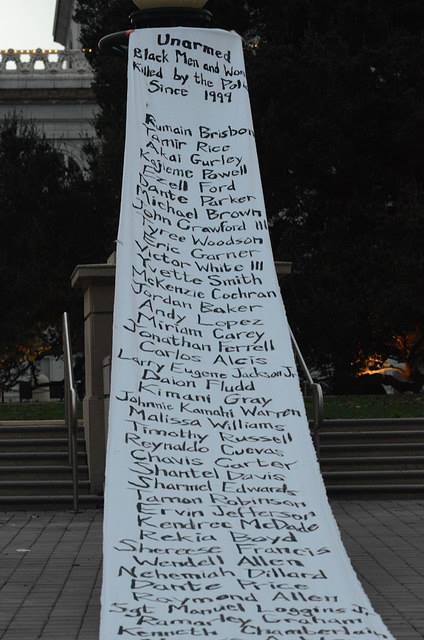 Unarmed
Black Men and Wom
Killed by the Pol
Since 1999
Rumain Brisbon
Tamir Rice
Akai Gurley
Kajieme Powell
Ezell Ford
Dante Parker
Michael Brown
John Crawford III
Tyree Woodson
Eric Garner
Victor White III
Yvette Smith
McKenzie Cochran
Jordan Baker
Andy Lopez
Miriam Carey
Jonathan Ferrell
Carlos Alcis
Larry Eugene Jackson Jr.
Daion Fludd
Kimani Gray
Johnnie Kamahi Warren
Malissa Williams
Timothy Russell
Reynaldo Cuevas
Chavis Carter
Shantel Davis
Sharmel Edwards
Tamon Robinson
Ervin Jefferson
Kendrec McDade
Rekia Boyd
Shereese Francis
Wendell Allen
Nehemiah Dillard
Dante Price
Raymond Allen
Sgt Manuel Loggins Jr.
Ramarley Graham
Kenneth Chamberla